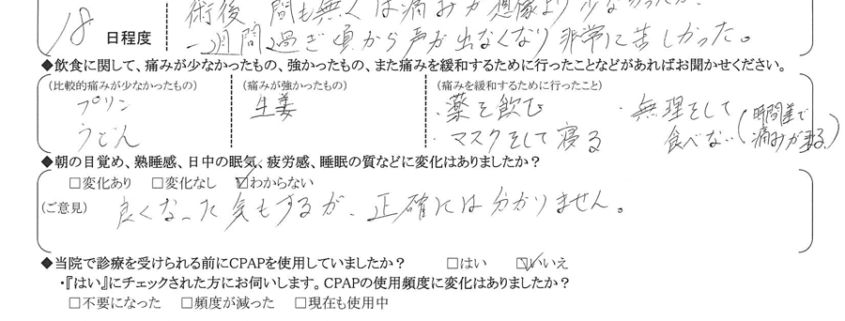 術後間も無くは痛みが想像より少なかったが、
18 日程度 一週間過ぎ頃から声が出なくなり非常に苦しかった。
◆飲食に関して、痛みが少なかったもの、強かったもの、また痛みを緩和するために行ったことなどがあればお聞かせください。
(比較的痛みが少なかったもの) (痛みが強かったもの) (痛みを緩和するために行ったこと)
プリン 生姜 ・薬を飲む ・無理をして
うどん ・マスクをして寝る 食べない(時間差で痛みが来る)
◆朝の目覚め、熟睡感、日中の眠気、疲労感、睡眠の質などに変化はありましたか?
□変化あり □変化なし ☑わからない
(ご意見) 良くなった気もするが、正確には分かりません。
◆当院で診療を受けられる前にCPAPを使用していましたか? □はい ☑いいえ
・『はい』にチェックされた方にお伺いします。CPAPの使用頻度に変化はありましたか?
□不要になった □頻度が減った □現在も使用中